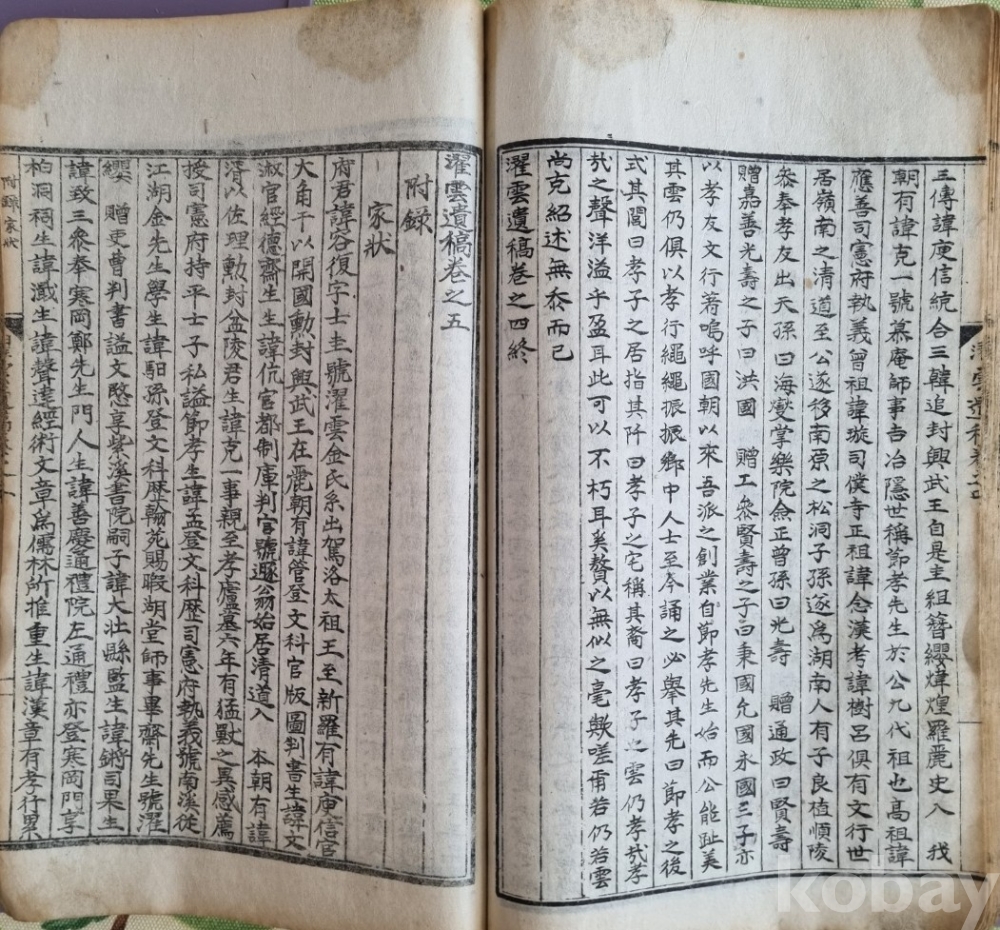 三傳諱庾信統合三韓追封興武王自是圭組簪纓煒煌羅麗史入 我
朝有諱克一號慕庵師事吉冶隱世稱節孝先生於公九代祖也高祖諱
應善司憲府執義曾祖諱璇司僕寺正祖諱念漢考諱樹呂俱有文行世
居嶺南之清道至公遂移南原之松洞子孫遂爲湖南人有子良植順陵
叅奉孝友出天孫曰海燮掌樂院僉正曾孫曰光壽 贈通政曰賢壽
贈嘉善光壽之子曰洪國 贈工叅賢壽之子曰秉國允國永國三子亦
以孝友文行著嗚呼國朝以來吾派之創業自節孝先生始而公能趾美
其雲仍俱以孝行繩繩振振鄉中人士至今誦之必舉其先曰節孝之後
式其閭曰孝子之居指其阡曰孝子之宅稱其裔曰孝子之雲仍孝哉孝
哉之聲洋溢乎盈耳此可以不朽耳奚贅以無似之毫歟嗟甭若仍若雲
尚克紹述無忝而已
濯雲遺稿卷之四終
濯雲遺稿卷之五
附録
家狀
府君諱容復字士圭號濯雲金氏系出駕洛太祖王至新羅有諱庾信官
大角干以開國勳封興武王在麗朝有諱管登文科官版圖判書生諱文
淑官經德齋生生諱伉官都制庫判官號遯翁始居清道入 本朝有諱
湑以佐理勳封盆陵君生諱克一事親至孝廬墓六年有猛獸之異感薦
授司憲府持平士子私謚節孝生諱孟登文科歷司憲府執義號南溪從
江湖金先生學生諱馹孫登文科歷翰苑賜暇湖堂師事畢齋先生號濯
纓 贈吏曹判書謚文愍享紫溪書院嗣子諱大壯縣監生諱鏘司果生
諱致三叅奉寒岡鄭先生門人生諱善慶通禮院左通禮亦登寒岡門享
柏洞祠生諱濈生諱聲達經術文章爲儒林所推重生諱漢章有孝行累
附録家狀
kobay